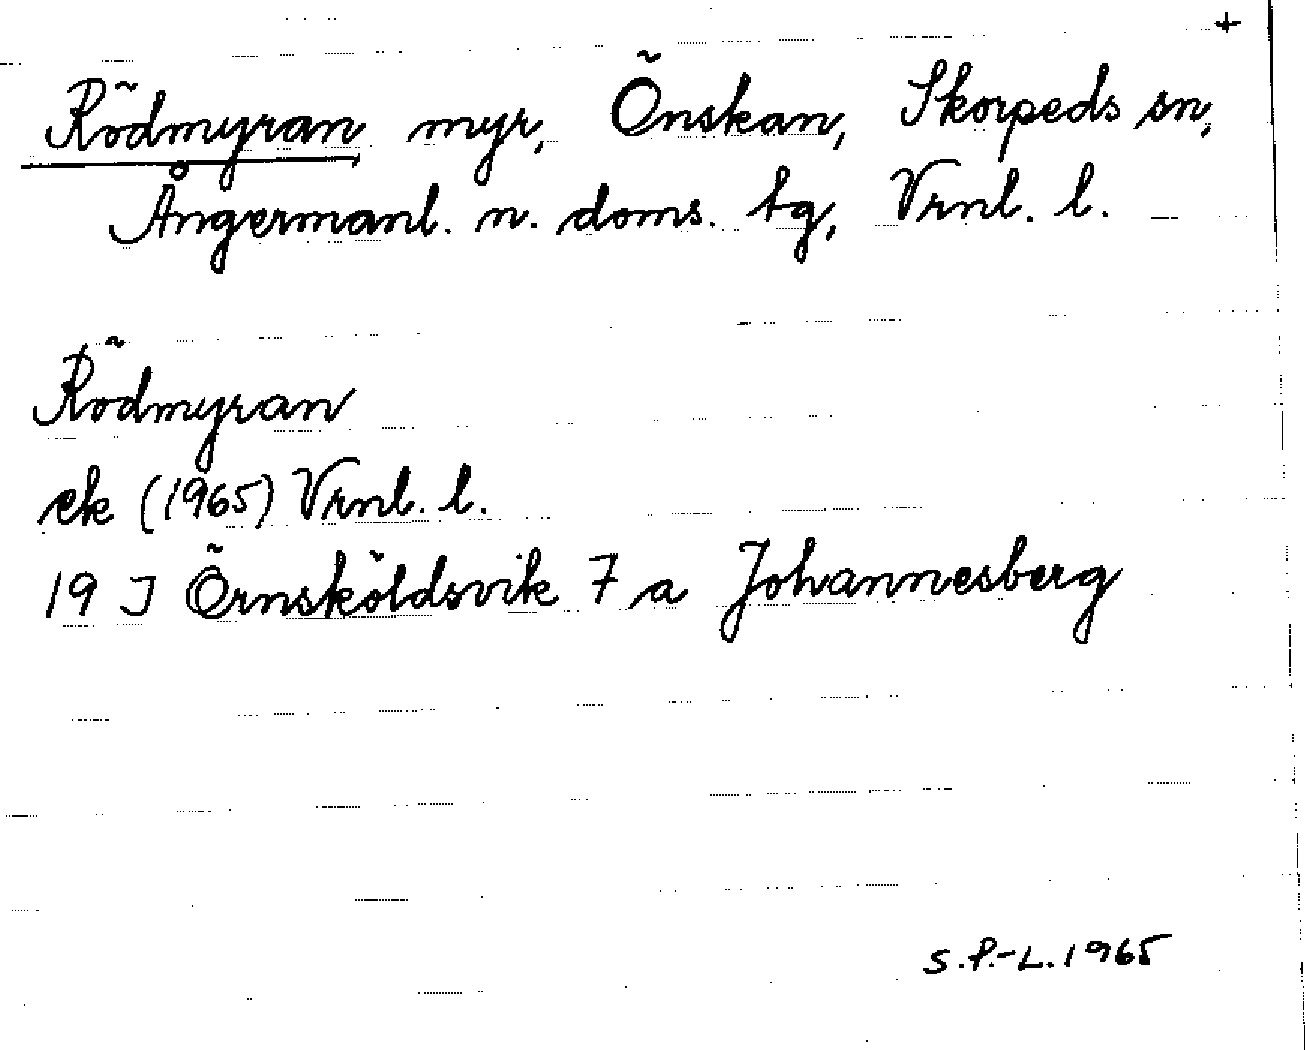 +
Rödmyran myr, Önskan, Skorpeds sn,
Ångermanl. n. doms. tg, Vrnl. l.
Rödmyran
ek (1965) Vrnl. l.
19 J Örnsköldsvik 7 a Johannesberg
S.P.-L. 1965